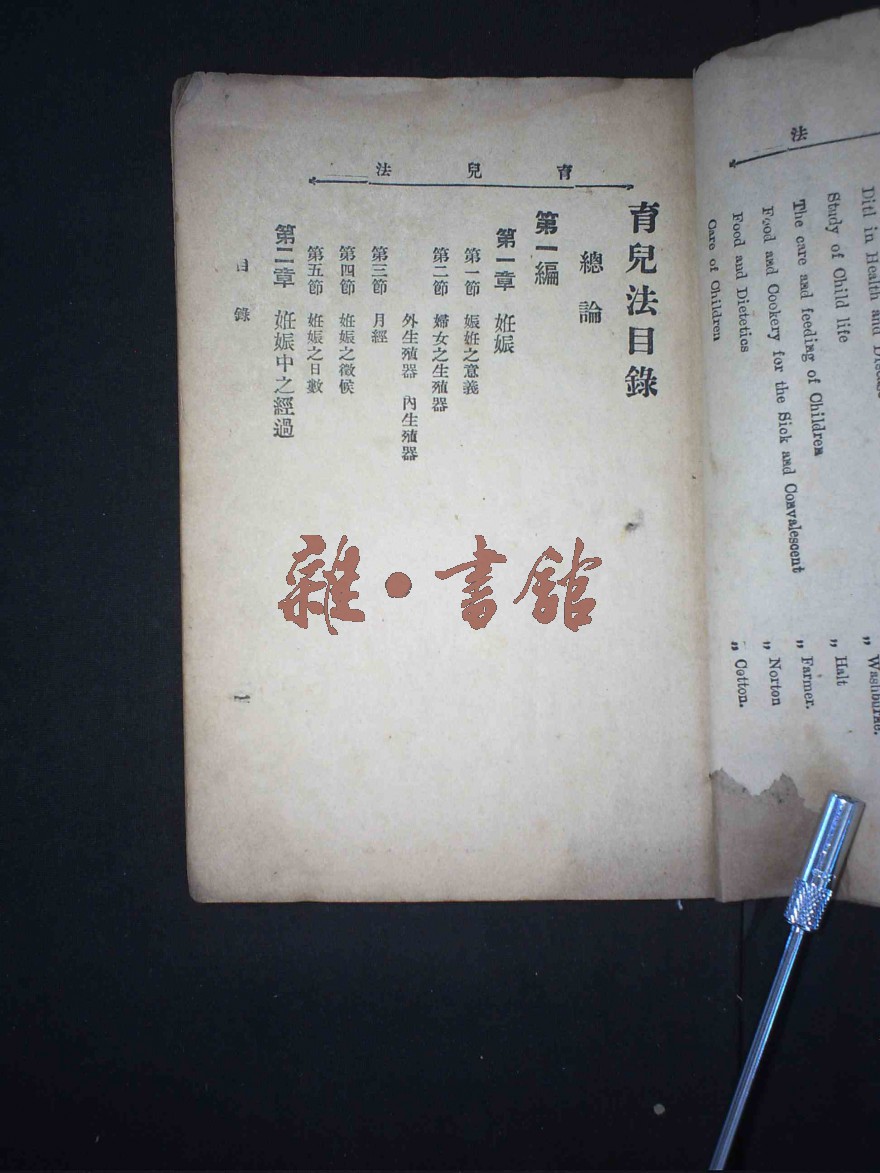 育兒法
育兒法目錄
總論
第一編
第一章 姙娠
第一節 娠姙之意義
第二節 婦女之生殖器
外生殖器 內生殖器
第三節 月經
第四節 姙娠之徵候
第五節 姙娠之日數
第二章 姙娠中之經過
目錄
一
雜·書館
法
Study of Child life „ Halt
The care and feeding of Children „ Farmer.
Food and Cookery for the Sick and Convalescent „ Norton
Food and Dietetics „ Cotton.
Care of Children